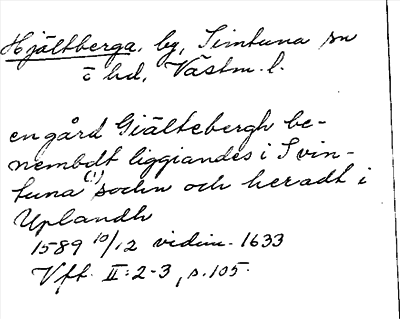 Hjältberga, by, Simtuna sn
o hd, Västm. l.
en gård Giältebergh be-
nembdt liggiandes i Svin-
tuna (!) sochn och heradt i
Uplandh
1589 10/12 vidim. 1633
Vfl. II:2-3, s. 105.